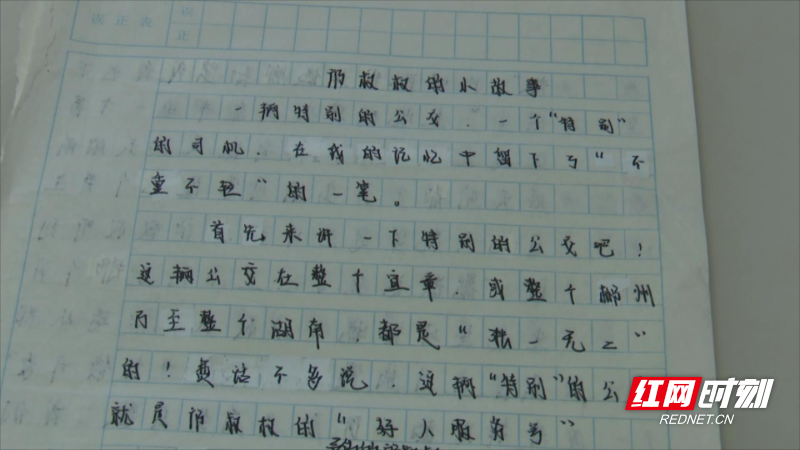 误正表
误
正
邝叔叔的小故事
一辆特别的公交,一个“特别”
的司机,在我的记忆中留下了“不
重不轻”的一笔。
首先来讲一下特别的公交吧!
这辆公交在整个宜章,或整个郴州
乃至整个湖南,都是“独一无二”
的!废话不多说,这辆“特别”的公
就是邝叔叔的“好人服务号”
红网时刻
REDNET.CN